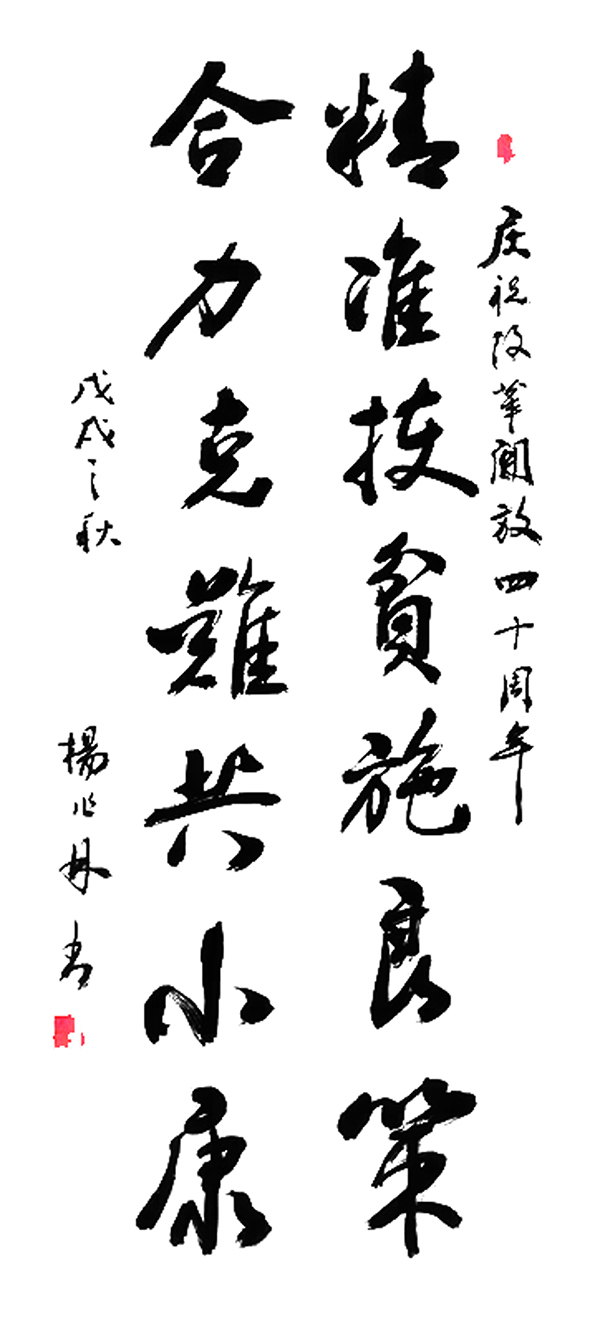 庆祝改革開放四十周年
精准扶貧施良策
合力克難共小康
戊戌之秋
楊林書